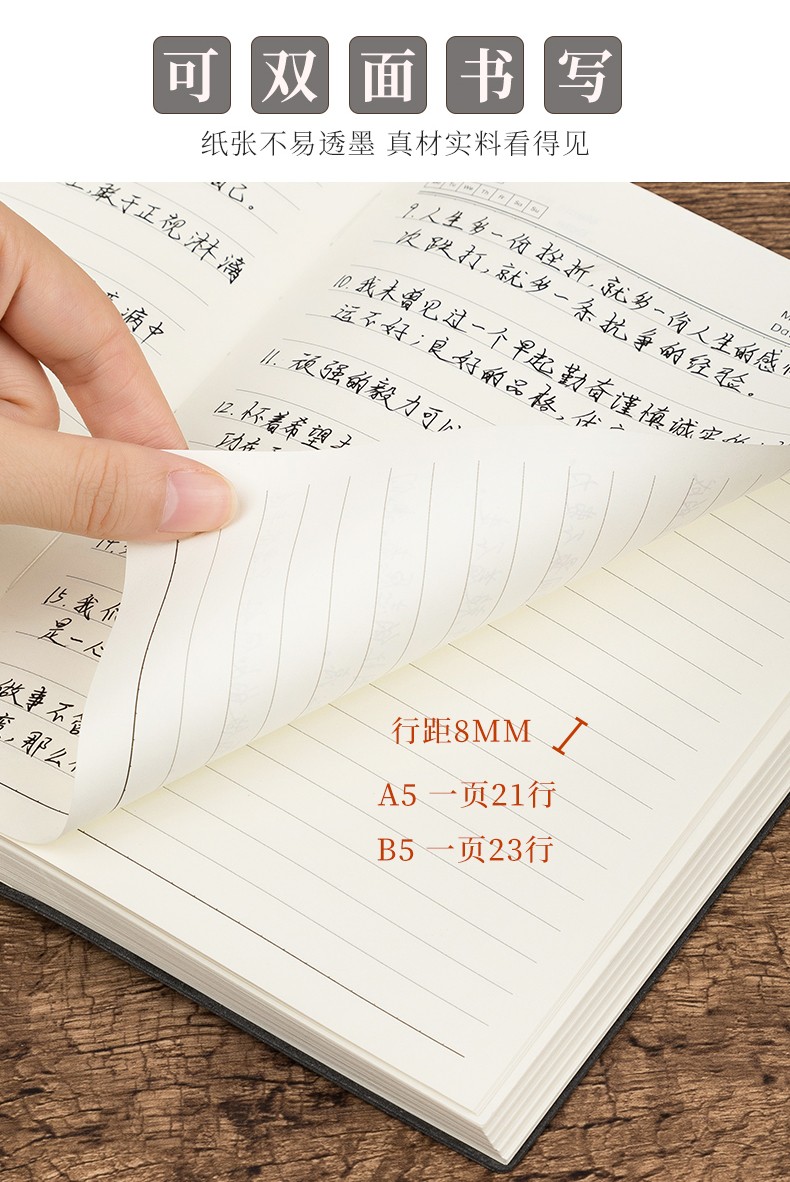 可双面书写
纸张不易透墨 真材实料看得见
己。
敢于正视淋漓
病中
We Th Fr Sa Su
9.人生多一份挫折,就多一份人生的感
次跌打,就多一条抗争的经验。
10.我未曾见过一个早起勤奋谨慎诚实的
运不好;良好的品格,
11.顽强的毅力可以
12.怀着希望去
功在
14.
15.我们
是一心
做事不管
那么
行距8MM
A5 一页21行
B5 一页23行